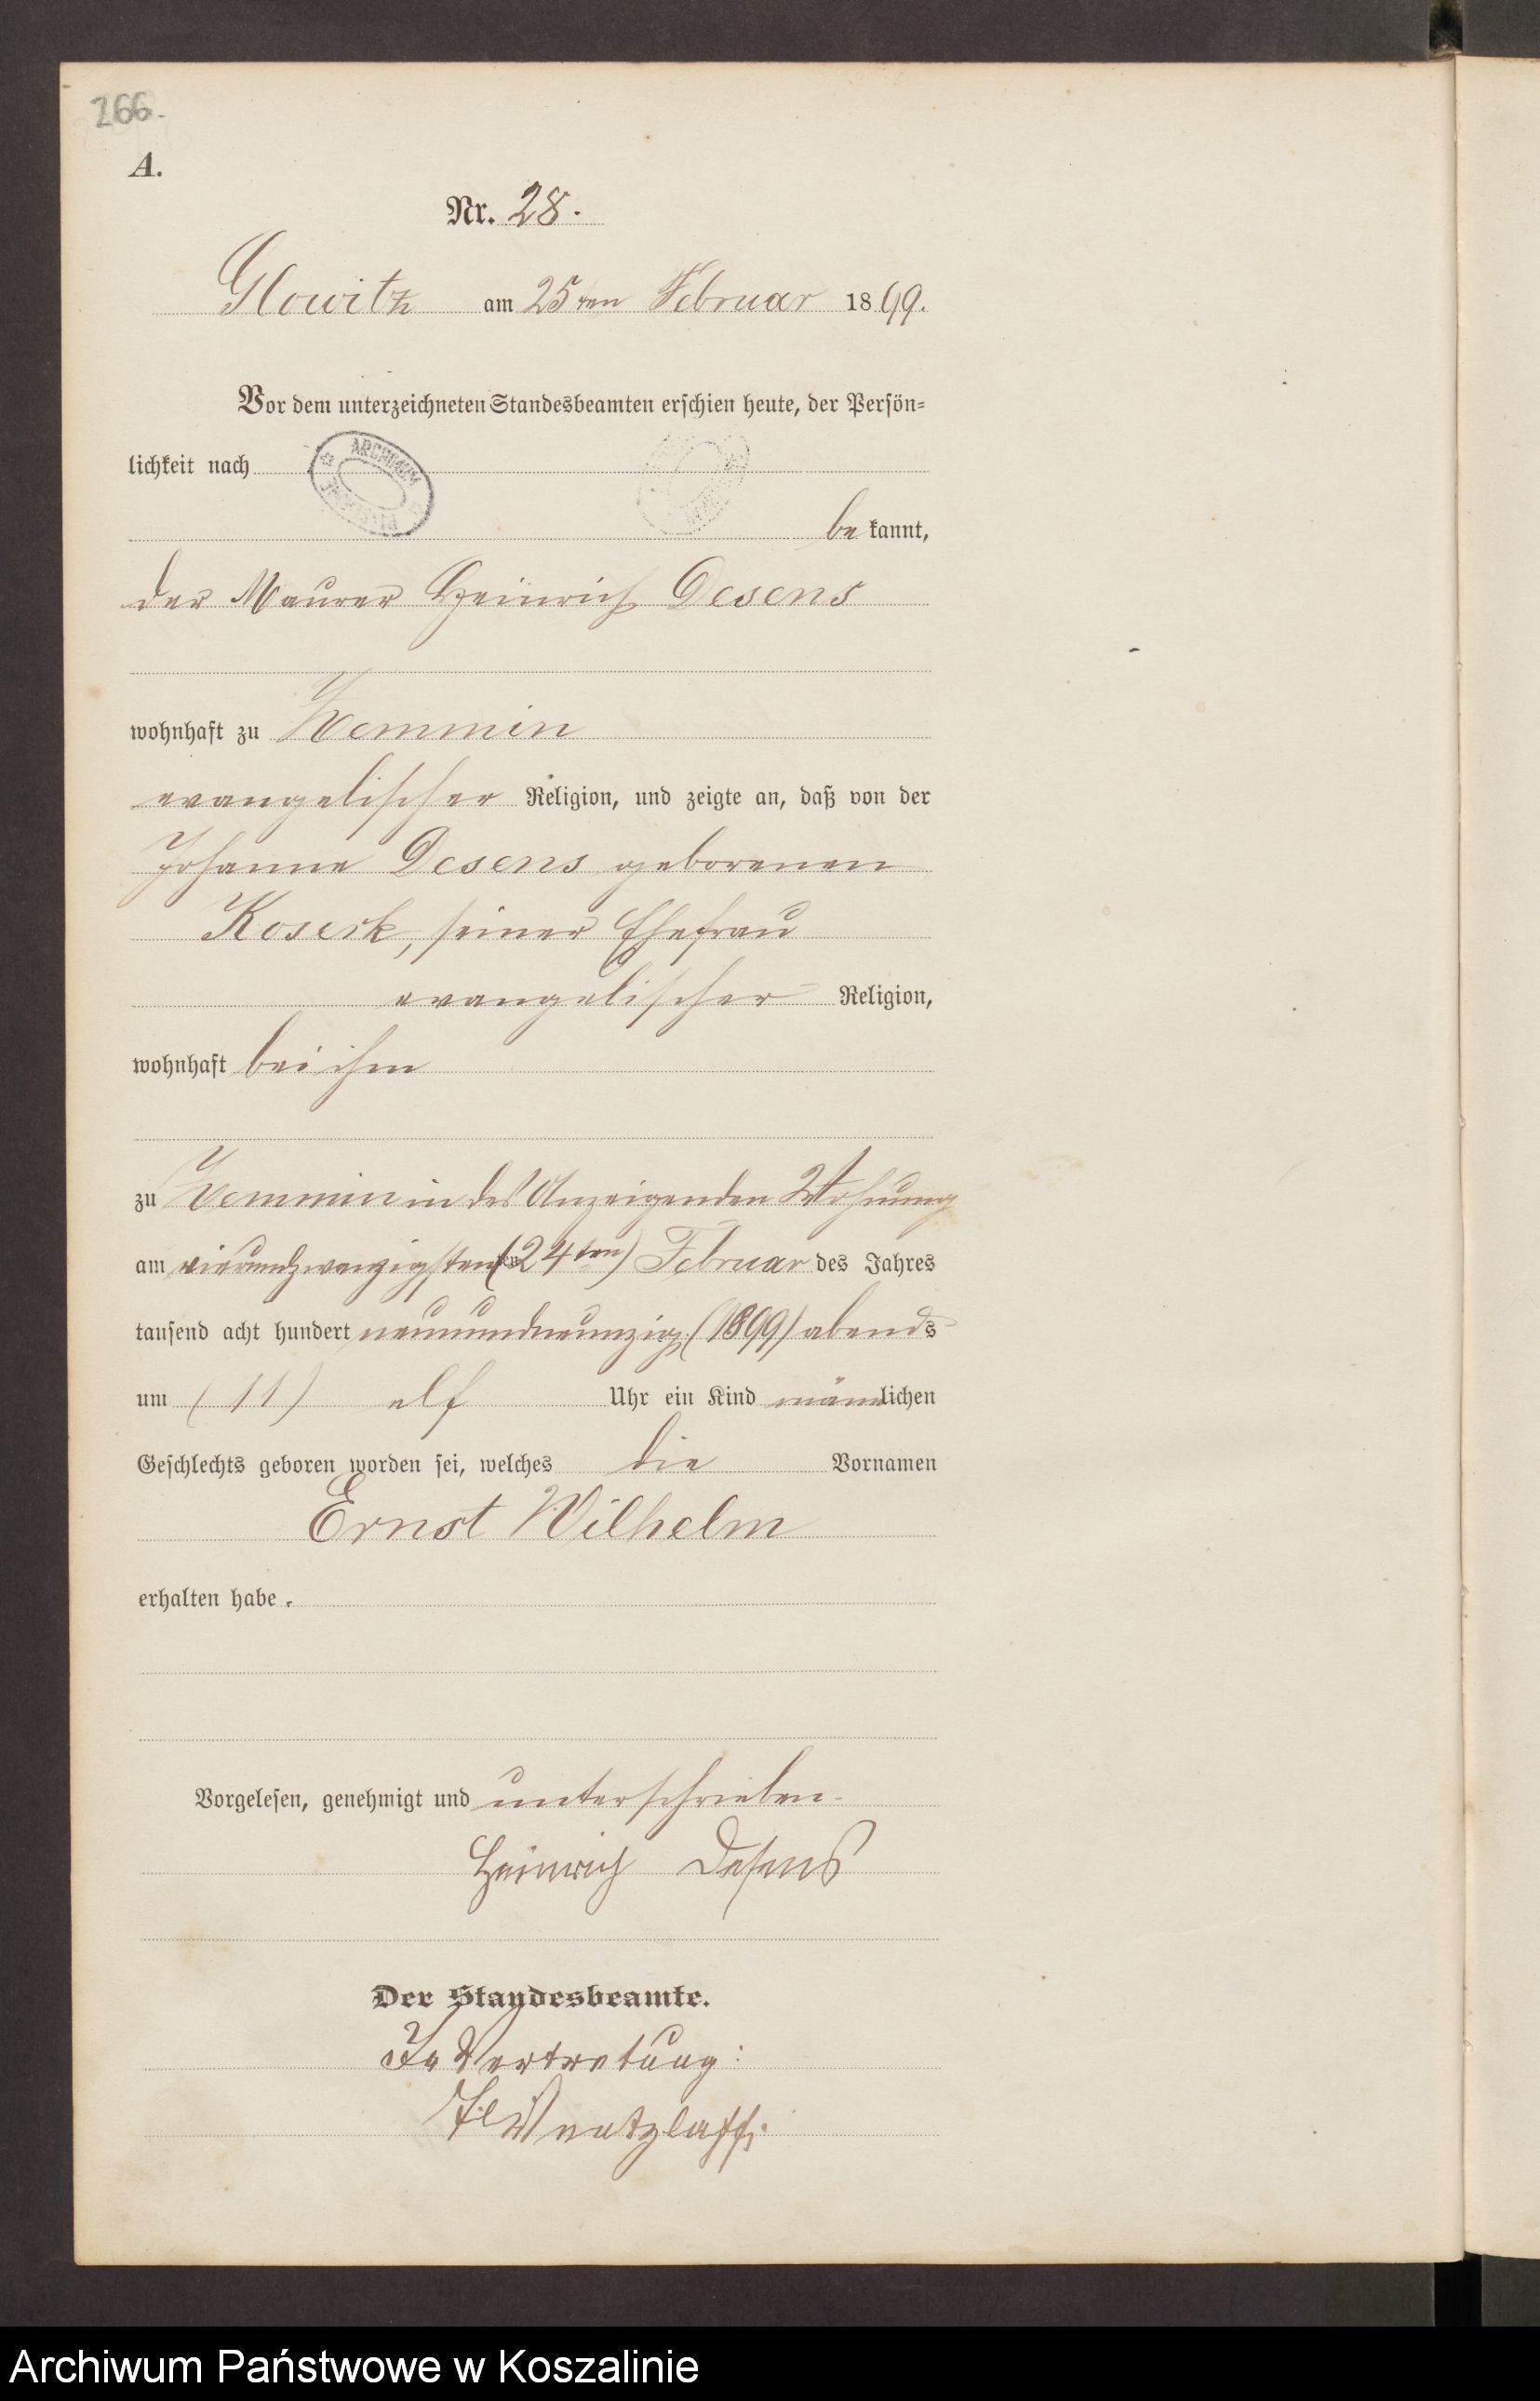 266.
A.
Nr. 28.
Glowitz am 25ten Februar 1899.
Vor dem unterzeichneten Standesbeamten erschien heute, der Persön=
lichkeit nach
ARCHIWUM
be kannt,
der Maurer Heinrich Desens
wohnhaft zu Zemmin
evangelischer Religion, und zeigte an, daß von der
Johanne Desens geborenen
Koserk, seiner Ehefrau
evangelischer Religion,
wohnhaft bei ihm
zu Zemmin in des Anzeigenden Wohnung
am vierundzwanzigsten (24ten) Februar des Jahres
tausend acht hundert neunundneunzig (1899) abends
um (11) elf Uhr ein Kind männlichen
Geschlechts geboren worden sei, welches die Vornamen
Ernst Wilhelm
erhalten habe.
Vorgelesen, genehmigt und unterschrieben.
Heinrich Desens
Der Standesbeamte.
In Vertretung:
Wentzlaff.
Archiwum Państwowe w Koszalinie